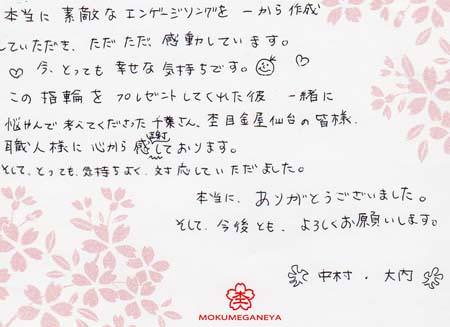 本当に 素敵な エンゲージリングを 一から 作成
していただき、ただただ、感動しています。
♡ 今、とっても 幸せな 気持ちです。 ♡
この 指輪を プレゼントしてくれた彼 一緒に
悩やんで 考えてくださった 千葉さん、杢目金屋仙台の皆様、
職人様に 心から 感謝しております。
そして、とっても、気持ちよく、対応していただました。
本当に、ありがとうございました。
そして、今後とも、よろしくお願いします。
中村・大内
杢
MOKUMEGANEYA